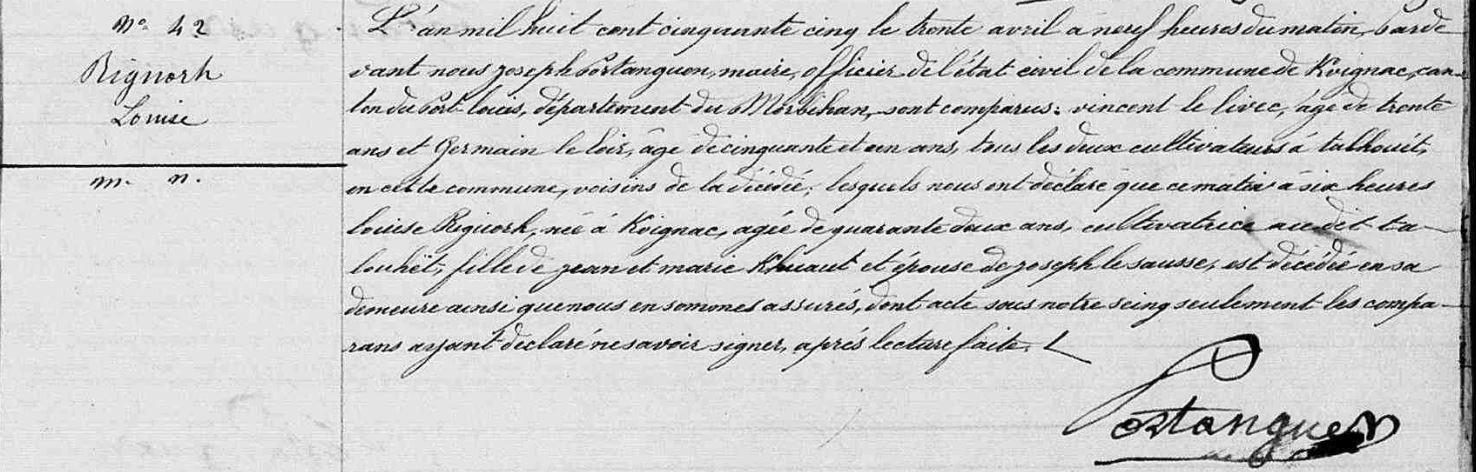 N° 42
Rignorh
Louise
m. n.
L'an mil huit cent cinquante cinq le trente avril à neuf heures du matin, parde
vant nous Joseph Portanguen, maire, officier de l'état civil de la commune de Kvignac, can-
ton du Port-Louis, département du Morbihan, sont comparus: vincent le livec, âgé de trente
ans et Germain le loir, âgé de cinquante et un ans, tous les deux cultivateurs à talhouët,
en cette commune, voisins de la décédée; lesquels nous ont déclaré que ce matin à six heures
louise Rignorh, née à Kvignac, agée de quarante deux ans, cultivatrice au dit ta-
louhët, fille de jean et marie Khuaut et épouse de joseph le sausse, est décédée en sa
demeure ainsi que nous en sommes assurés, dont acte sous notre seing seulement les compa-
rans ayant déclaré ne savoir signer, après lecture faite.
Portanguen